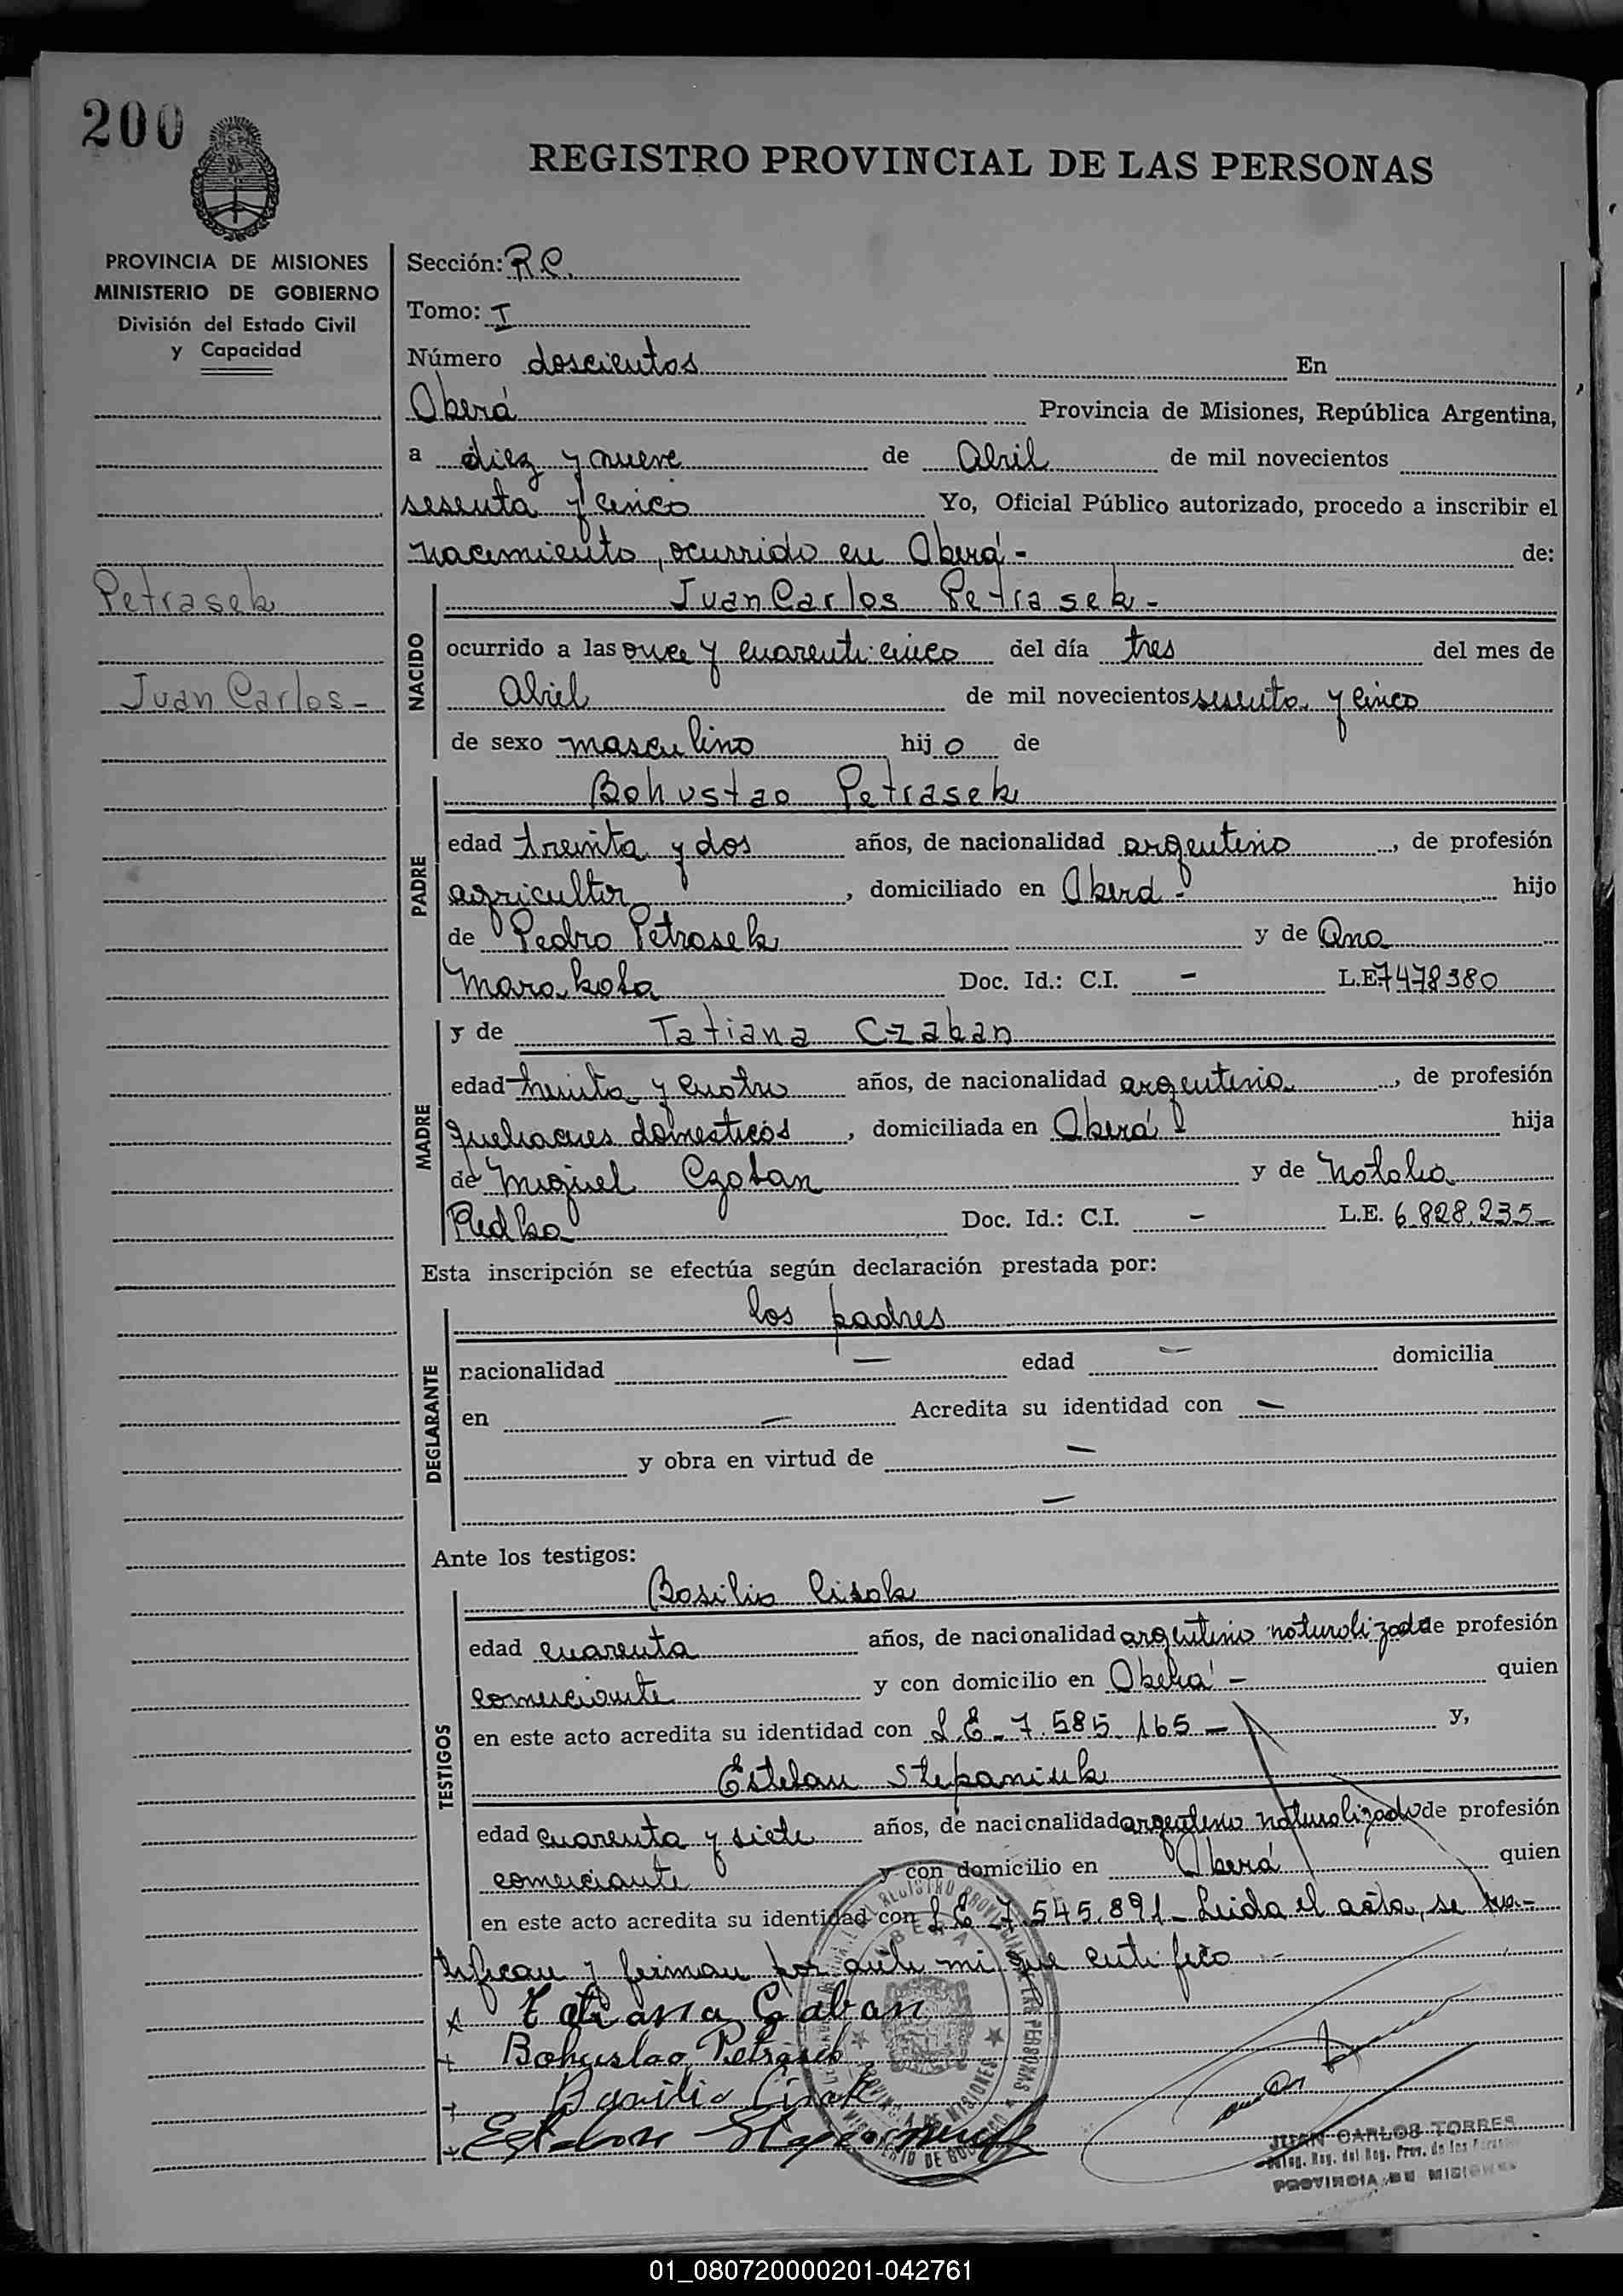 200
REGISTRO PROVINCIAL DE LAS PERSONAS
PROVINCIA DE MISIONES
MINISTERIO DE GOBIERNO
División del Estado Civil
y Capacidad
Petrasek
Juan Carlos -
Sección: R.C.
Tomo: I
Número doscientos En
Oberá Provincia de Misiones, República Argentina,
a diez y nueve de Abril de mil novecientos
sesenta y cinco Yo, Oficial Público autorizado, procedo a inscribir el
nacimiento, ocurrido en Oberá - de:
NACIDO
Juan Carlos Petrasek -
ocurrido a las once y cuarenti cinco del día tres del mes de
Abril de mil novecientos sesenta y cinco
de sexo masculino hijo de
PADRE
Bohustao Petrasek
edad treinta y dos años, de nacionalidad argentino, de profesión
agricultor, domiciliado en Oberá - hijo
de Pedro Petrasek y de Ana
Marakota Doc. Id.: C.I. - L.E 7478380
MADRE
y de Tatiana Czaban
edad treinta y cuatro años, de nacionalidad argentina, de profesión
quehaceres domesticos, domiciliada en Oberá - hija
de Miguel Czaban y de Natalia
Redko Doc. Id.: C.I. - L.E. 6.828.235-
Esta inscripción se efectúa según declaración prestada por:
DECLARANTE
los padres
nacionalidad — edad — domicilia
en — Acredita su identidad con —
y obra en virtud de —
—
Ante los testigos:
TESTIGOS
Basilio Cisak
edad cuarenta años, de nacionalidad argentino naturalizado de profesión
comerciante y con domicilio en Oberá - quien
en este acto acredita su identidad con L.E - 7.585.165 - y,
Esteban Stepaniuk
edad cuarenta y siete años, de nacionalidad argentino naturalizado de profesión
comerciante y con domicilio en Oberá quien
en este acto acredita su identidad con L.E 7.545.891 - Leida el acta, se ra-
tifican y firman por ante mi que certifico -
x Tatiana Czaban
+ Bohuslao Petrasek
+ Basilio Cisak
+ Esteban Stepaniuk
JUAN CARLOS TORRES
PROVINCIA DE MISIONES
01_080720000201-042761